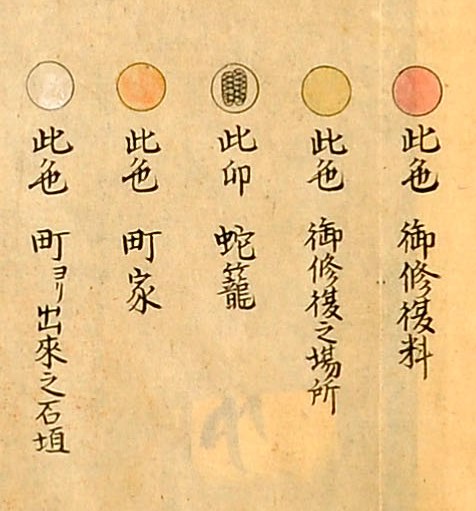 此色 御修復料
此色 御修復之場所
此卯 蛇籠
此色 町家
此色 町ヨリ出來之石垣